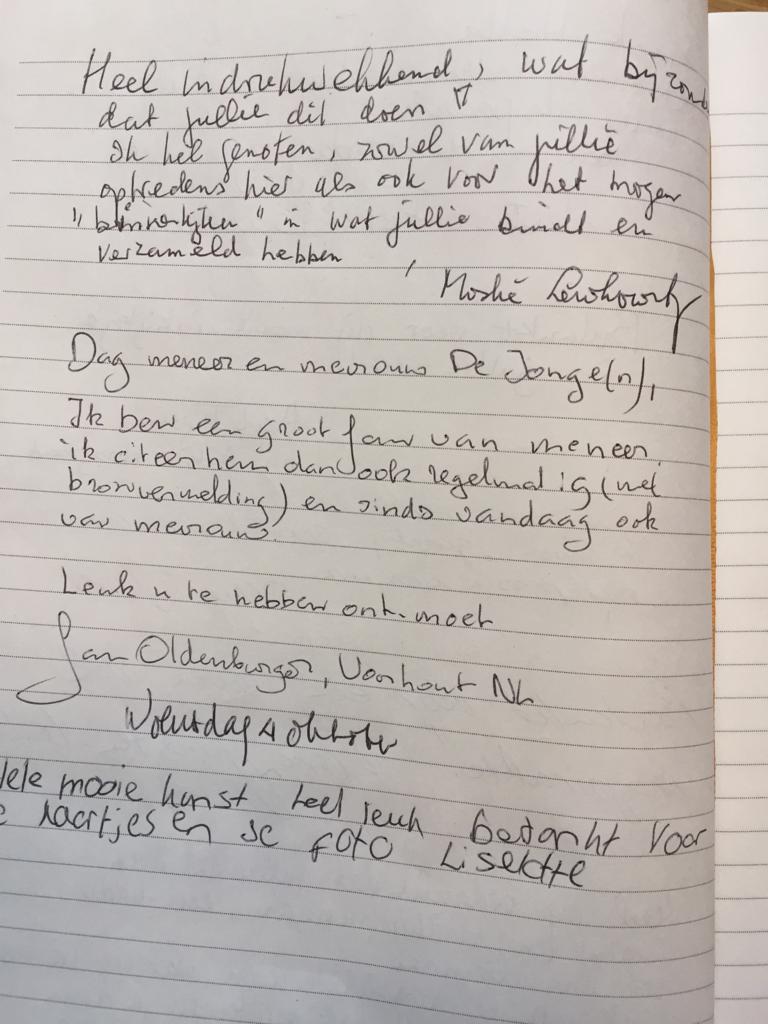 Heel indrukwekkend, wat bijzond
dat jullie dit doen
Ik heb genoten, zowel van jullie
optredens hier als ook voor het mogen
" binnenkijken " in wat jullie bindt en
verzameld hebben
Moshé
Dag meneer en mevrouw De Jonge(n),
Ik ben een groot fan van meneer,
ik citeer hem dan ook regelmatig (met
bronvermelding) en sinds vandaag ook
van mevrouw.
Leuk u te hebben ont.moet
Jan Oldenburger, Voorhout NL
Woensdag 4 Oktober
Hele mooie kunst heel leuk bedankt voor
kaartjes en de foto Liselotte